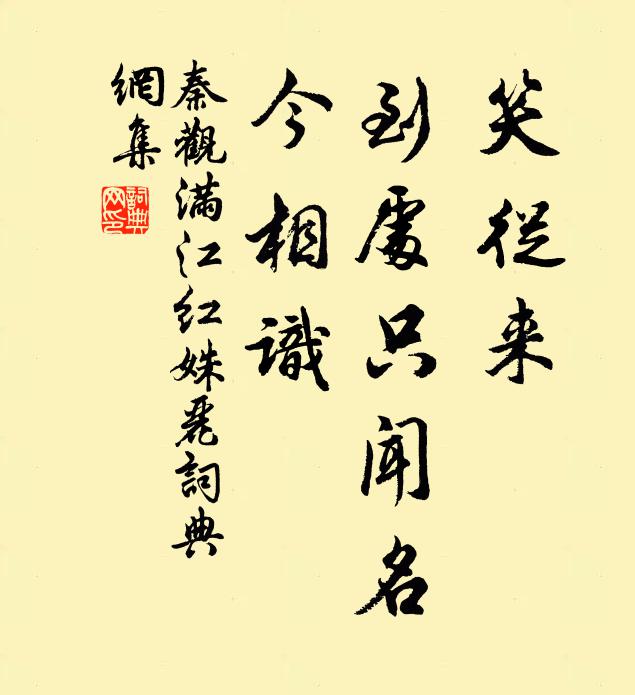 笑從来
到處只聞名
今相識
秦觀滿江紅姝麗詞典
網集
詞典網印